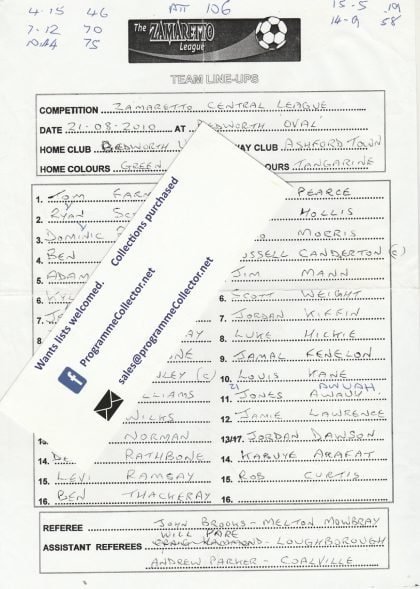 4-15 46 ATT 106 15-5 19
7-12 70 14-9 58
75
The ZAMARETTO League
TEAM LINE-UPS
COMPETITION ZAMARETTO CENTRAL LEAGUE
DATE 21-08-2010 AT BEDWORTH OVAL
HOME CLUB BEDWORTH AWAY CLUB ASHFORD TOWN
HOME COLOURS GREEN COLOURS TANGARINE
1. TOM FARN PEARCE
2. RYAN HOLLIS
3. DOMINIC MORRIS
4. BEN RUSSELL CANDERTON (C)
5. ADAM JIM MANN
6. KYLE 6. SCOTT WEIGHT
7. 7. JORDAN KIFFIN
8. LUKE HICKIE
9. JAMAL FENELON
(C) 10. LOUIS KANE
WILLIAMS 11. 21 JONES AWUAH
WILKS 12. JAMIE LAWRENCE
NORMAN 13/17. JORDAN DAWSON
14. RATHBONE 14. KABUYE ARAFAT
15. LEVI RAMSAY 15. ROB CURTIS
16. BEN THACKERAY 16.
Wants lists welcomed. Collections purchased
ProgrammeCollector.net
sales@programmeCollector.net
REFEREE JOHN BROOKS - MELTON MOWBRAY
WILL PARE
ASSISTANT REFEREES - LOUGHBOROUGH
ANDREW PARKER - COALVILLE